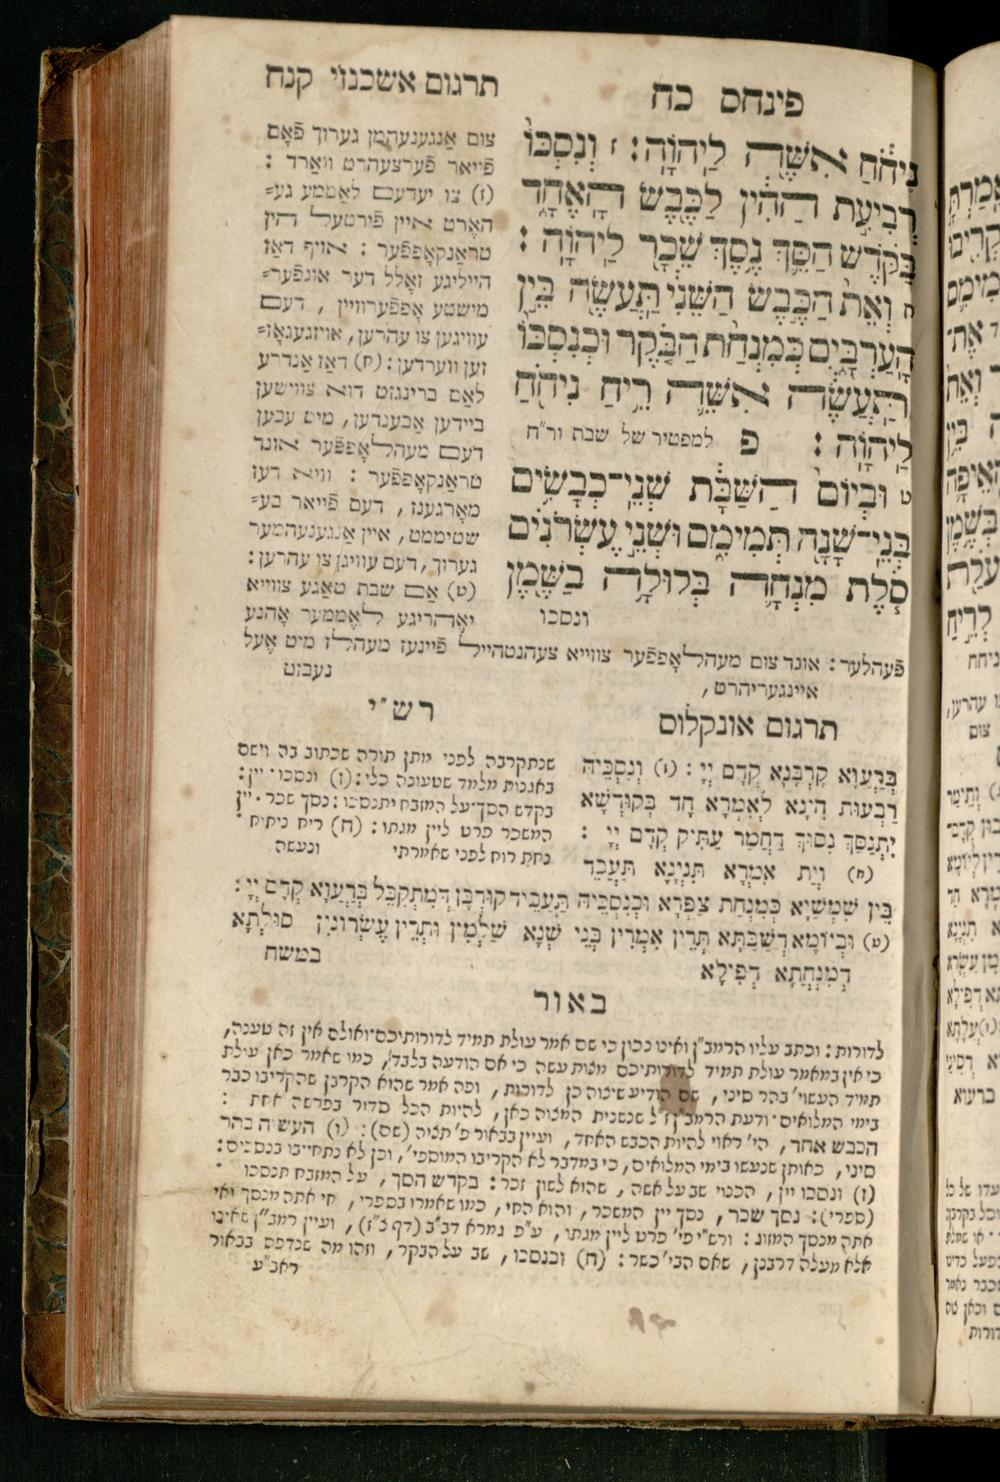 פינחס כח
תרגום אשכנזי קנח
נִיחֹחַ אִשֶּׁה לַיהוָה: ז וְנִסְכּוֹ
רְבִיעִת הַהִין לַכֶּבֶשׂ הָאֶחָד
בַּקֹּדֶשׁ הַסֵּךְ נֶסֶךְ שֵׁכָר לַיהוָה:
ח וְאֵת הַכֶּבֶשׂ הַשֵּׁנִי תַּעֲשֶׂה בֵּין
הָעַרְבָּיִם כְּמִנְחַת הַבֹּקֶר וּכְנִסְכּוֹ
תַּעֲשֶׂה אִשֵּׁה רֵיחַ נִיחֹחַ
לַיהוָה: פ למפטיר של שבת ור"ח
ט וּבְיוֹם הַשַּׁבָּת שְׁנֵי־כְבָשִׂים
בְּנֵי־שָׁנָה תְּמִימִם וּשְׁנֵי עֶשְׂרֹנִים
סֹלֶת מִנְחָה בְּלוּלָה בַשֶּׁמֶן
ונסכו
צום אַנגענעהמן גערוך פֿאָם
פֿייאר פֿערצעהרט וואַרד:
(ז) צו יעדעם לאַממע גע=
האָרט איין פֿירטעל הין
טראַנקאָפפֿער: אויף דאַז
הייליגע זאָלל דער אונפֿער=
מישטע אָפפֿערוויין, דעם
עוויגען צו עהרען, אויזגעגאָז=
זען ווערדען: (ח) דאַז אַנדרע
לאַם ברינגזט דוא צווישען
ביידען אַבענדען, מיט עבען
דעם מעהלאָפפֿער אונד
טראַנקאָפפֿער: וויא דעז
מאָרגענז, דעם פֿייאר בע=
שטיממט, איין אַנגענעהמער
גערוך, דעם עוויגן צו עהרען:
(ט) אַם שבת טאַגע צווייא
יאָהריגע לאֶממער אָהנע
פֿעהלער: אונד צום מעהלאָפפֿער צווייא צעהנטהייל פֿיינעז מעהלז מיט אָעל
איינגעריהרט, נעבזט
תרגום אונקלוס
בְּרַעֲוָא קֻרְבָּנָא קֳדָם יְיָ: (ז) וְנִסְכֵּיהּ
רַבְעוּת הִינָא לְאִמְרָא חָד בְּקוּדְשָׁא
יִתְנַסַּךְ נִסּוּךְ דַּחֲמַר עַתִּיק קֳדָם יְיָ:
(ח) וְיָת אִמְרָא תִּנְיָנָא תַּעֲבֵד
בֵּין שִׁמְשַׁיָּא כְּמִנְחַת צַפְרָא וּכְנִסְכֵּיהּ תַּעְבֵּיד קוּרְבַּן דְּמִתְקַבֵּל בְּרַעֲוָא קֳדָם יְיָ:
(ט) וּבְיוֹמָא דְשַׁבַּתָּא תְּרֵין אִמְּרִין בְּנֵי שְׁנָא שַׁלְמִין וּתְרֵין עֶשְׂרוֹנִין סוּלְתָּא
דְמִנְחֲתָא דְּפִילָא במשח
רש"י
שנתקרבה לפני מתן תורה שכתוב בה וישם
באגנות מלמד שטעונה כלי: (ז) ונסכו. יין:
בקדש הסך. על המזבח יתנסכו: נסך שכר. יין
המשכר פרט ליין מגתו: (ח) ריח ניחוח.
נחת רוח לפני שאמרתי ונעשה
באור
לדורות: וכתב עליו הרמב"ן ואינו נכון כי שם אמר עולת תמיד לדורותיכם. ואולם אין זה טענה,
כי אין במאמר עולת תמיד לדורותיכם מצות עשה כי אם הודעה בלבד, כמו שאמר כאן עולת
תמיד העשוי' בהר סיני, שם הודיע שיצוה כן לדורות, ופה אמר שהוא הקרבן שהקריבו כבר
בימי המלואים. ודעת הרמב"ן ז"ל שנשנית המצוה כאן, להיות הכל סדור בפרשה אחת:
הכבש אחד, הי' ראוי להיות הכבש האחד, ועיין בבאור פ' תצוה (שם): (ו) העשיה בהר
סיני, כאותן שנעשו בימי המלואים, כי במדבר לא הקריבו המוספי', וכן לא נתחייבו בנסכים:
(ז) ונסכו יין, הכנוי שב על אשה, שהוא לשון זכר: בקדש הסך, על המזבח תנסכו
(ספרי): נסך שכר, נסך יין המשכר, והוא החי, כמו שאמרו בספרי, חי אתה מנסך ואי
אתה מנסך המזוג: ורש"י פי' פרט ליין מגתו, ע"פ גמרא דב"ב (דף צ"ז), ועיין רמב"ן שאינו
אלא מעלה דרבנן, שאם הבי' כשר: (ח) וכנסכו, שב על הבקר, וזהו מה שנדפס בבאור
ראב"ע